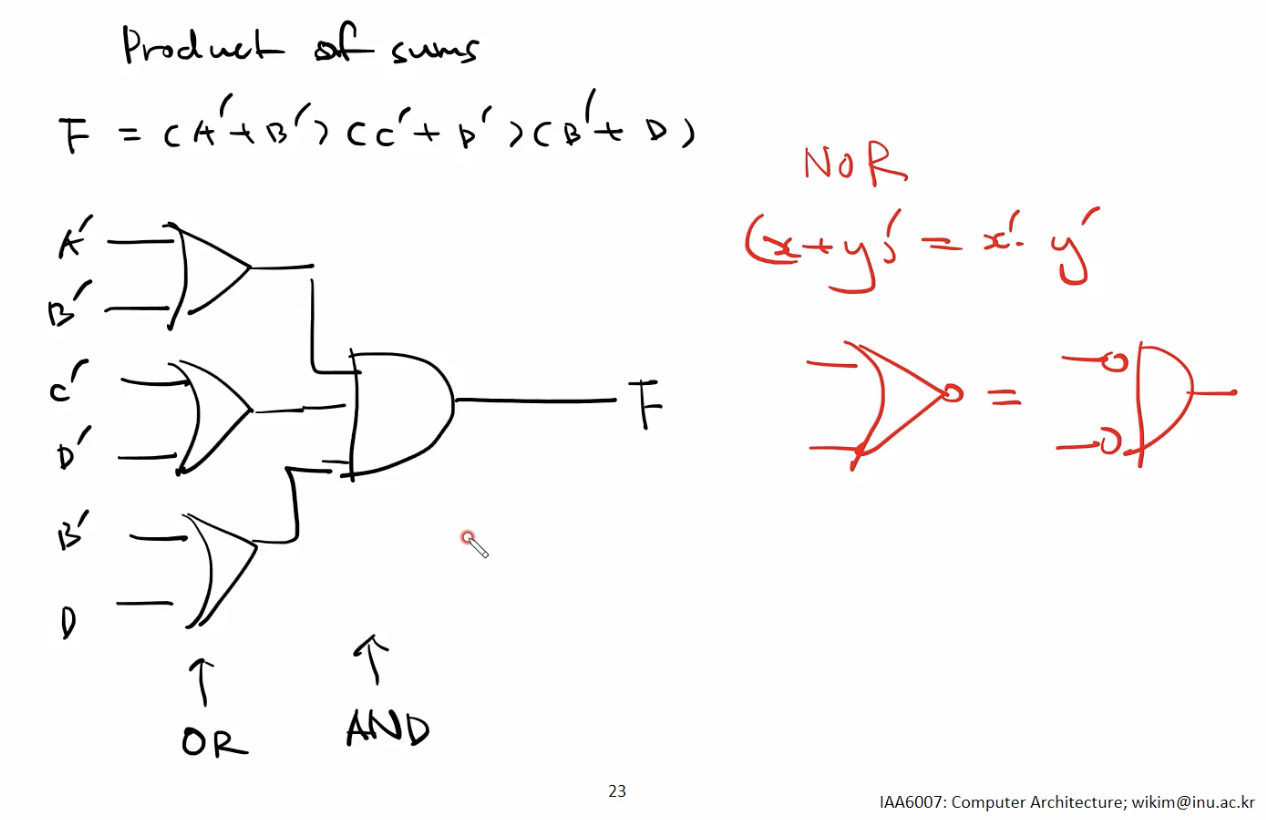 Product of sums
F = (A'+B')(C'+D')(B'+D)
NOR
(x+y)' = x'· y'
A'
B'
C'
F
D'
=
B'
D
OR
AND
23
IAA6007: Computer Architecture; wikim@inu.ac.kr